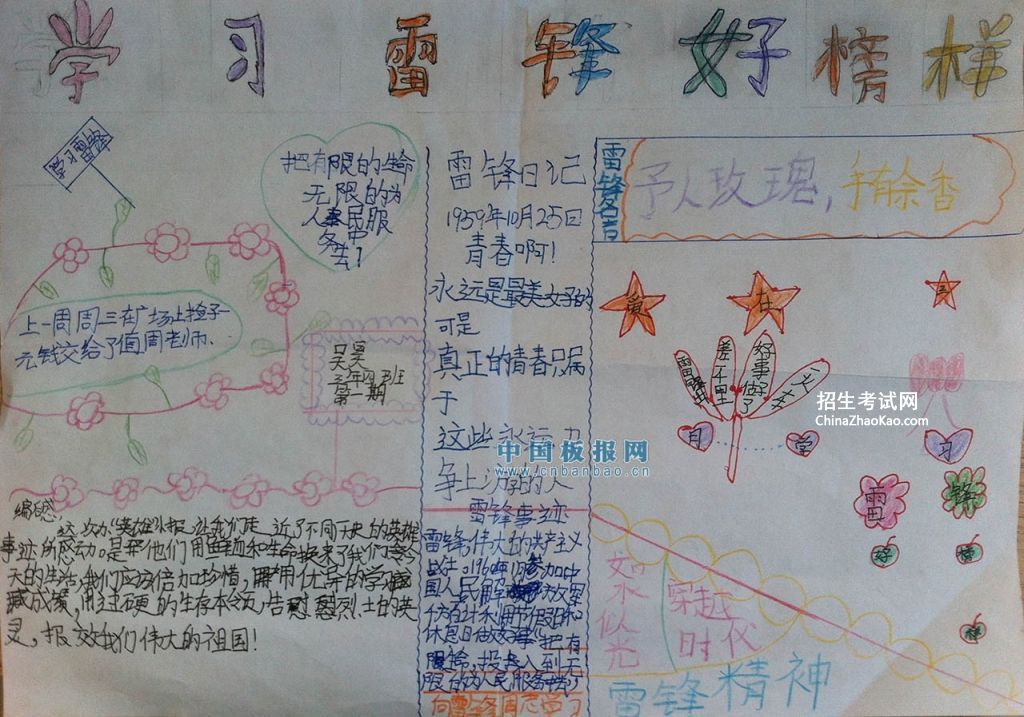 学习雷锋好榜样
学习雷锋
把有限的生命
无限的为
人民服
务中
去了
上一周周三在广场上捡子一
元钱交给了值周老师.
吴昊
三年四班
第一期
雷锋日记
1959年10月25日
青春啊!
永远是最美好的
可是
真正的青春只属
于
这些永远力
争上游的人
雷锋事迹
雷锋,伟大的共产主义
战士,1960年
参加中
国人民解放军
休息日做好事
把有
限的为人民服务中去了
向雷锋同志学习
雷锋名言
予人玫瑰,手有余香
爱
在
三
雷锋
差千里
好事做了
一火车
月
堂
习
雷
锋
好
榜
样
招生考试网
ChinaZhaoKao.com
中国板报网
www.cnbanbao.cn
编后感:
这次办“英雄”小报,让我们走近了不同历史的英雄
事迹所感动。是
他们用血和生命换来了我们今
天的生活,我们应该倍加珍惜,用优异的学
成绩,用过硬的生存本领,告慰烈士的英
灵,报效我们伟大的祖国!
如水似光
穿越
时
仪
雷锋精神